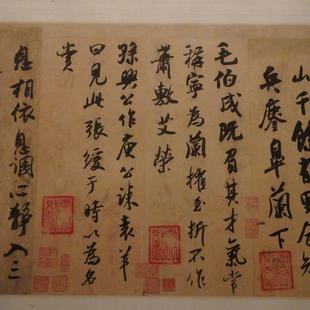 山千餘
兵鏖皋蘭下
毛伯成既負其才氣常
稱寧為蘭摧玉折不作
蕭敷艾榮
孫興公作庾公誄袁羊
曰見此張緩于時以為名
賞
息相依息調心靜入三